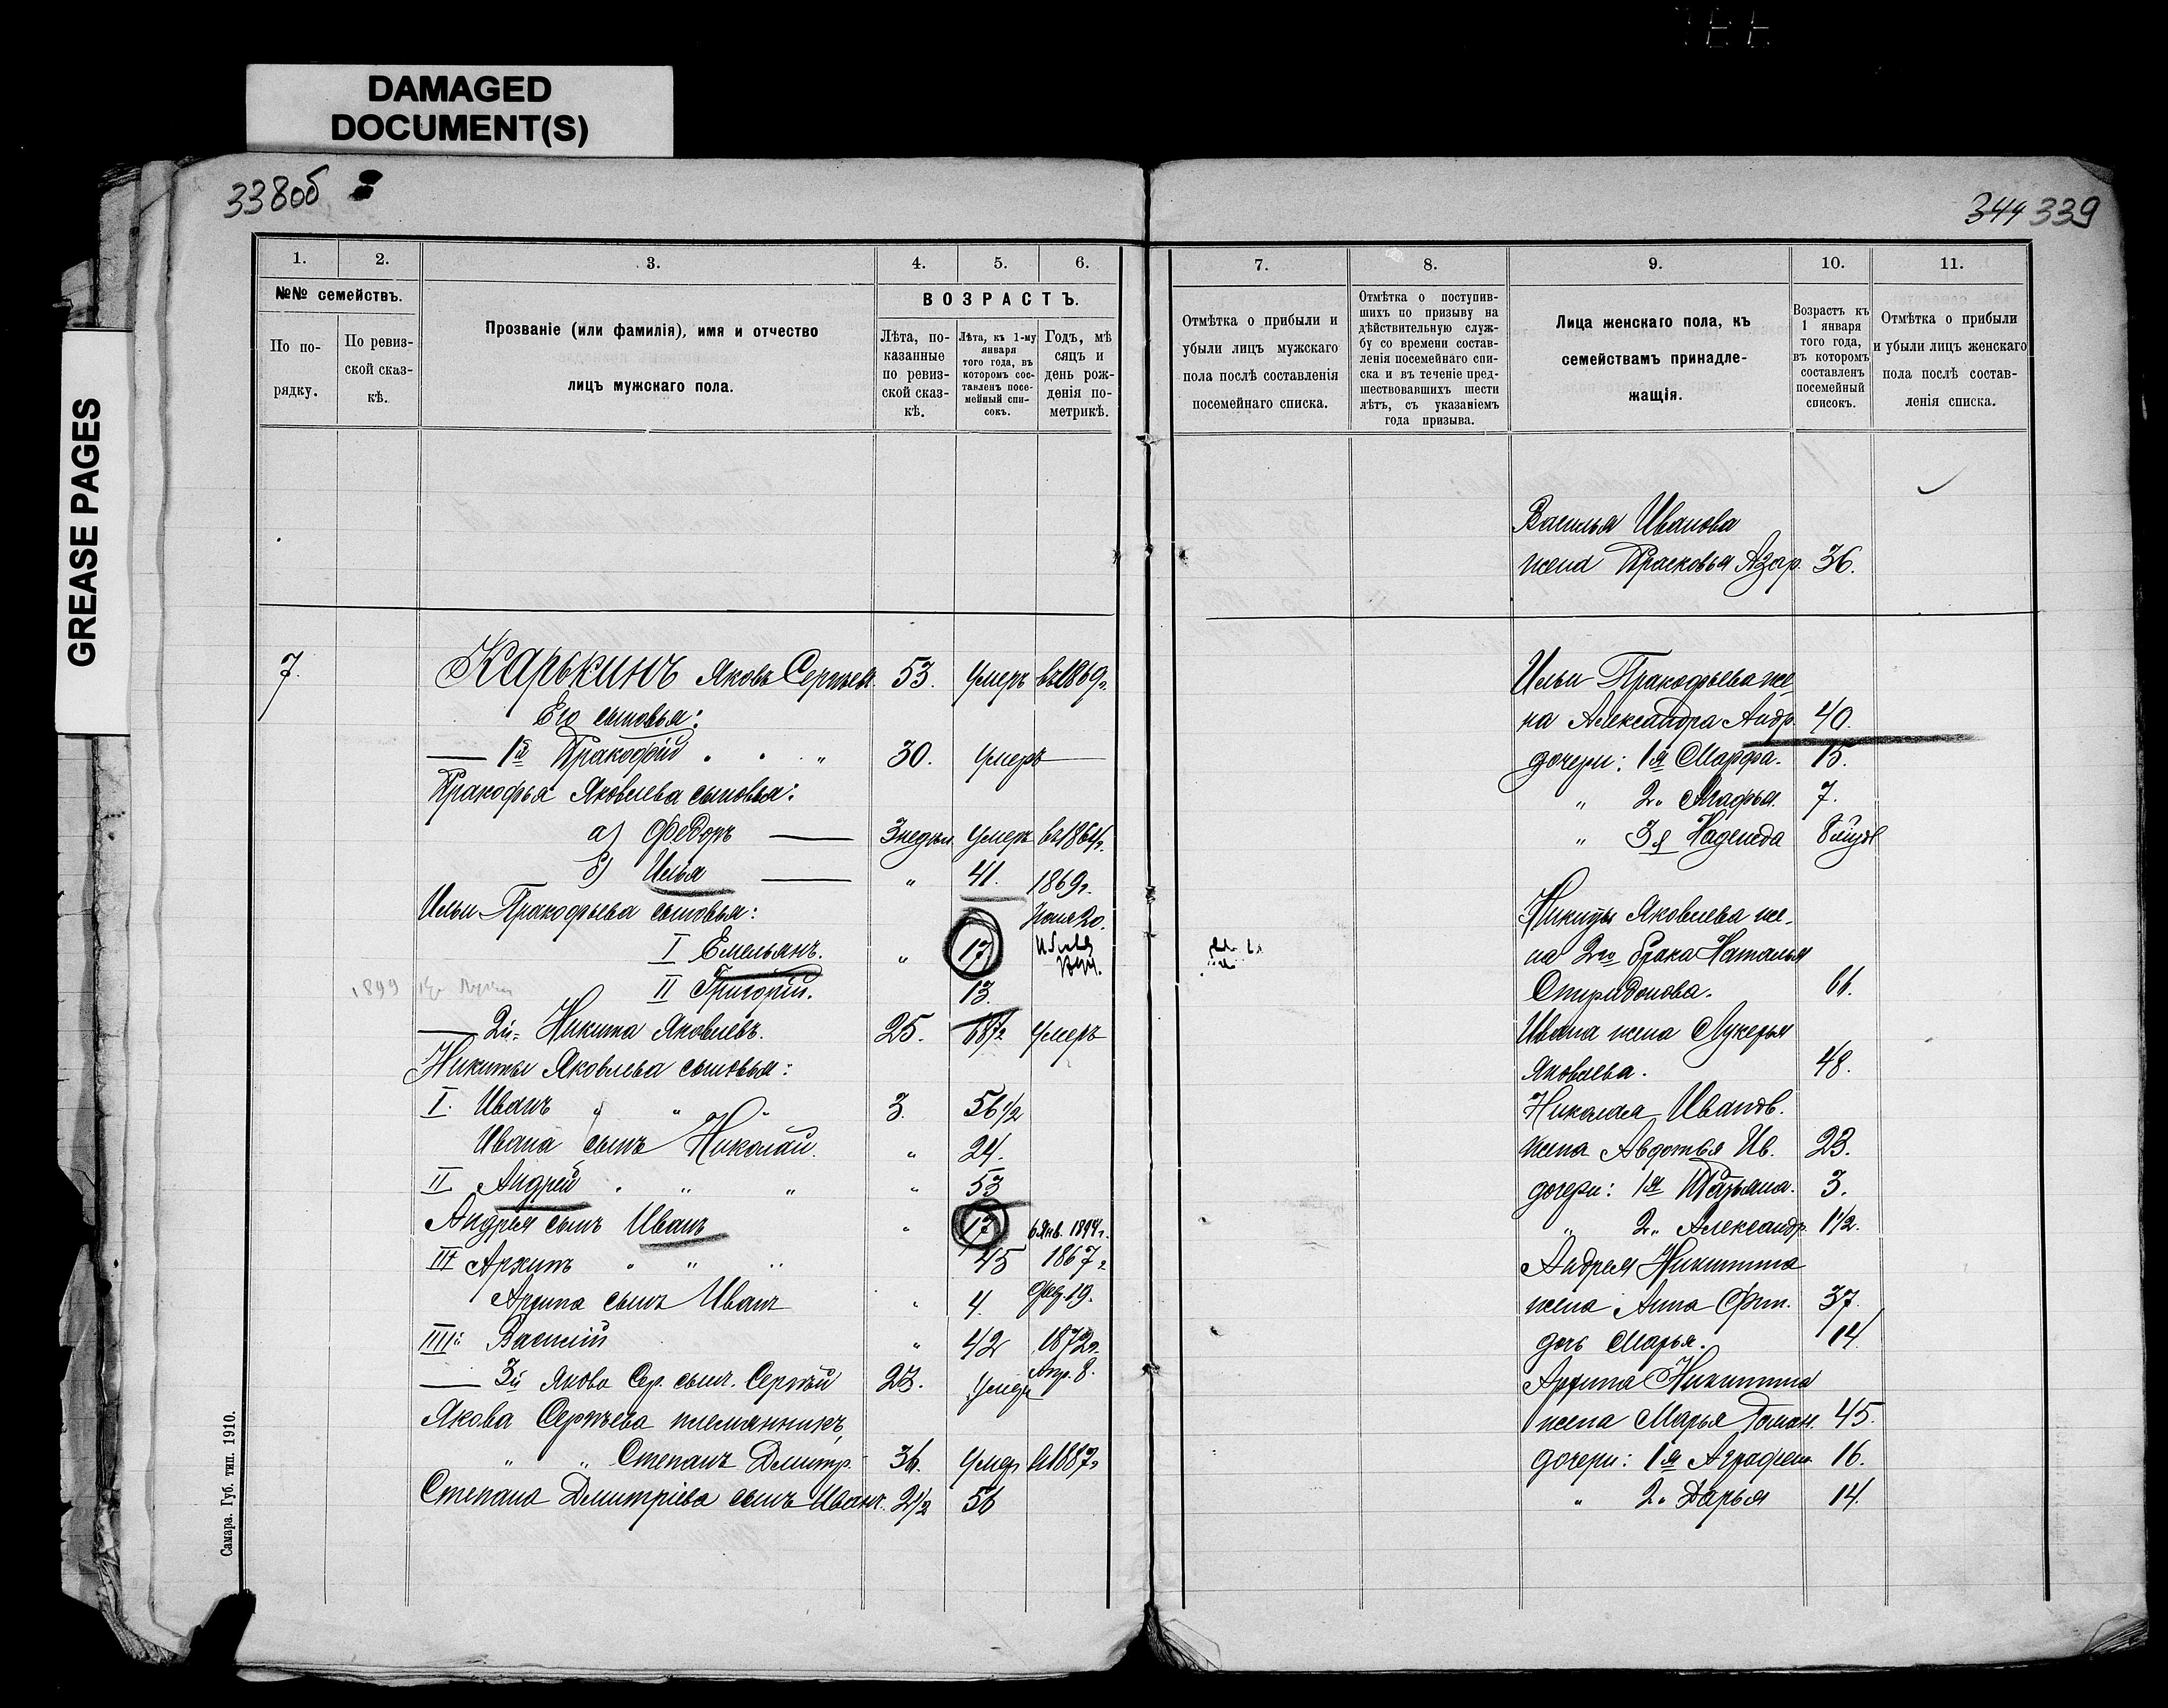 DAMAGED
DOCUMENT(S)
GREASE PAGES
338об
344 339
1.
2.
3.
4.
5.
6.
№№ семействъ.
По по-
рядку.
По ревиз-
ской сказ-
кѣ.
Прозваніе (или фамилія), имя и отчество
лицъ мужскаго пола.
ВОЗРАСТЪ.
Лѣта, по-
казанные
по ревиз-
ской сказ-
кѣ.
Лѣта, къ 1-му
января
того года, въ
которомъ сос-
тавленъ посе-
мейный спи-
сокъ.
Годъ, мѣ
сяцъ и
день рож-
денія по-
метрикѣ.
7. Карькинъ Яковъ Сергѣев. 53. Умеръ въ 1869г.
Его сыновья:
1й Пракофій 30. Умеръ
Пракофья Яковлева сыновья:
а) Федоръ 3 недѣли Умеръ въ 1864г.
б) Илья " 41. 1869г.
Ильи Пракофьева сыновья:
20.
I Емельянъ. " 17
1899
II Григорій. 13.
2й Никита Яковлевъ. 25. 1872 Умеръ
Никиты Яковлева сыновья:
I. Иванъ " " " 3. 56 1/2
Ивана сынъ Николай. " 24.
II Андрей " " " 53
Андрея сынъ Иванъ " 17 6 Янв. 1894г.
III Архипъ " " " 45 1867г
Архипа сынъ Иванъ " 4. Фев. 19.
IIIIй Василій " 42 1872г.
Апр. 8.
3й Якова Сер. сын. Сергѣй 23. Умеръ
Якова Сергѣева племянникъ,
" " Степанъ Дмитр. 36. Умер в 1887г
Степана Дмитріева сынъ Иванъ. 2 1/2 56
Самара. Губ. тип. 1910.
7.
8.
9.
10.
11.
Отмѣтка о прибыли и
убыли лицъ мужскаго
пола послѣ составленія
посемейнаго списка.
Отмѣтка о поступив-
шихъ по призыву на
дѣйствительную служ-
бу со времени состав-
ленія посемейнаго спи-
ска и въ теченіе пред-
шествовавшихъ шести
лѣтъ, съ указаніемъ
года призыва.
Лица женскаго пола, къ
семействамъ принадле-
жащія.
Возрастъ къ
1 января
того года,
въ которомъ
составленъ
посемейный
списокъ.
Отмѣтка о прибыли
и убыли лицъ женскаго
пола послѣ состав-
ленія списка.
Василья Иванова
жена Прасковья Азар. 36.
Ильи Пракофьева же-
на Александра Андр. 40.
дочери: 1я Марфа. 15.
" 2" Агафья. 7.
" 3я Надежда
Никиты Яковлева же-
на 2го брака Наталья
Спиридонова. 66.
Ивана жена Лукерья
Яковлева. 48.
Николая Иванов.
жена Авдотья Ив. 23.
дочери: 1я Татьяна. 3.
" 2" Александр. 1 1/2.
Андрея Никитина
жена Анна Фил. 37.
дочь Марья. 14.
Архипа Никитина
жена Марья Роман. 45.
дочери: 1я Аграфен. 16.
" 2" Дарья 14.